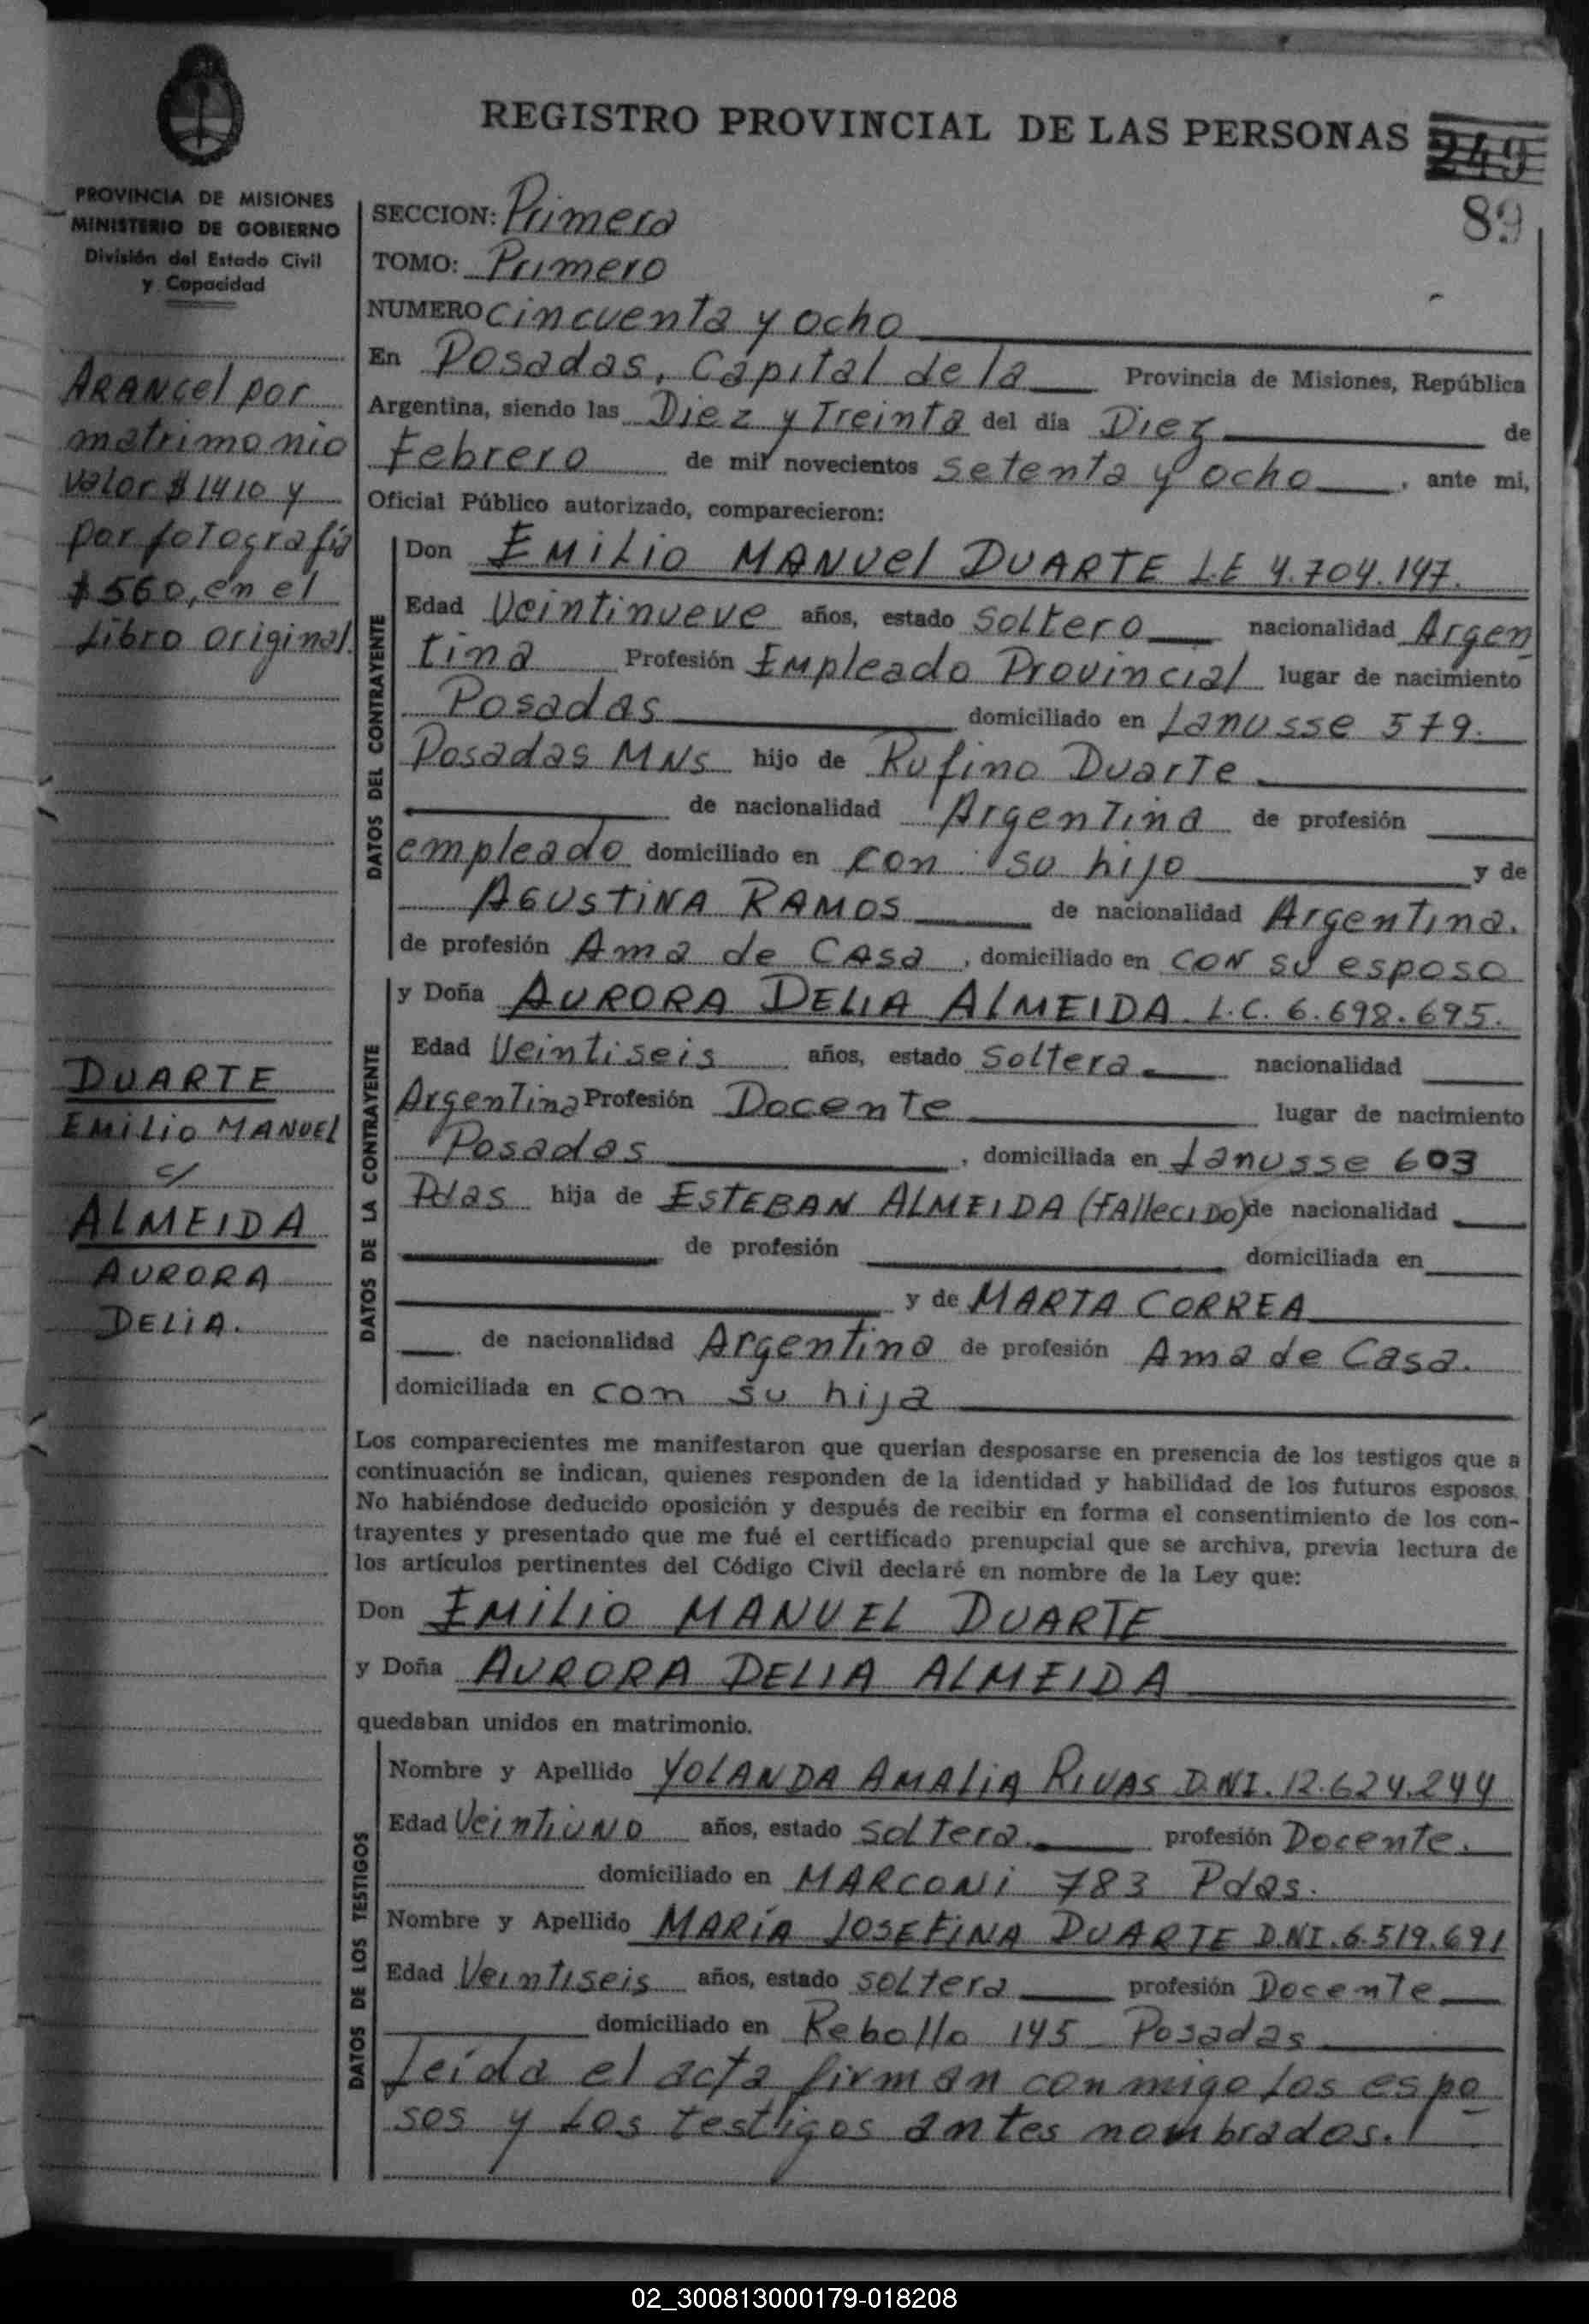 REGISTRO PROVINCIAL DE LAS PERSONAS 249
89
PROVINCIA DE MISIONES
MINISTERIO DE GOBIERNO
División del Estado Civil
y Capacidad
ARANCel por
matrimonio
valor $ 1410 y
por fotografía
$ 560, en el
Libro original.
DUARTE
EMILIO MANUEL
c/
ALMEIDA
AURORA
DELIA.
SECCION: Primera
TOMO: Primero
NUMERO cincuenta y ocho
En Posadas, Capital de la Provincia de Misiones, República
Argentina, siendo las Diez y Treinta del día Diez de
Febrero de mil novecientos setenta y ocho, ante mi,
Oficial Público autorizado, comparecieron:
DATOS DEL CONTRAYENTE
Don EMILIO MANUEl DUARTE L.E 4.704.147.
Edad Veintinueve años, estado Soltero nacionalidad Argen
tina Profesión Empleado Provincial lugar de nacimiento
Posadas domiciliado en Lanusse 579.
Posadas MNS hijo de Rufino Duarte
de nacionalidad Argentina de profesión
empleado domiciliado en con su hijo y de
AGUSTINA RAMOS de nacionalidad Argentina.
de profesión Ama de CASA, domiciliado en CON su esposo
DATOS DE LA CONTRAYENTE
y Doña AURORA DELIA ALMEIDA. L.C. 6.698.695.
Edad Veintiseis años, estado Soltera nacionalidad
Argentina Profesión Docente lugar de nacimiento
Posadas, domiciliada en Lanusse 603
Pdas hija de ESTEBAN ALMEIDA (FAllecIDO) de nacionalidad
de profesión domiciliada en
y de MARTA CORREA
de nacionalidad Argentina de profesión Ama de Casa.
domiciliada en con su hija
Los comparecientes me manifestaron que querían desposarse en presencia de los testigos que a
continuación se indican, quienes responden de la identidad y habilidad de los futuros esposos.
No habiéndose deducido oposición y después de recibir en forma el consentimiento de los con-
trayentes y presentado que me fué el certificado prenupcial que se archiva, previa lectura de
los artículos pertinentes del Código Civil declaré en nombre de la Ley que:
Don EMILIO MANUEL DUARTE
y Doña AURORA DELIA ALMEIDA
quedaban unidos en matrimonio.
DATOS DE LOS TESTIGOS
Nombre y Apellido YOLANDA AMALIA RIVAS D.NI. 12.624.244
Edad Veintiuno años, estado soltera profesión Docente.
domiciliado en MARCONI 783 Pdas.
Nombre y Apellido MARÍA JOSEFINA DUARTE D.NI. 6.519.691
Edad Veintiseis años, estado soltera profesión Docente
domiciliado en Rebollo 145 Posadas
Leída el acta firman conmigo los espo
sos y los testigos antes nombrados.
02_300813000179-018208